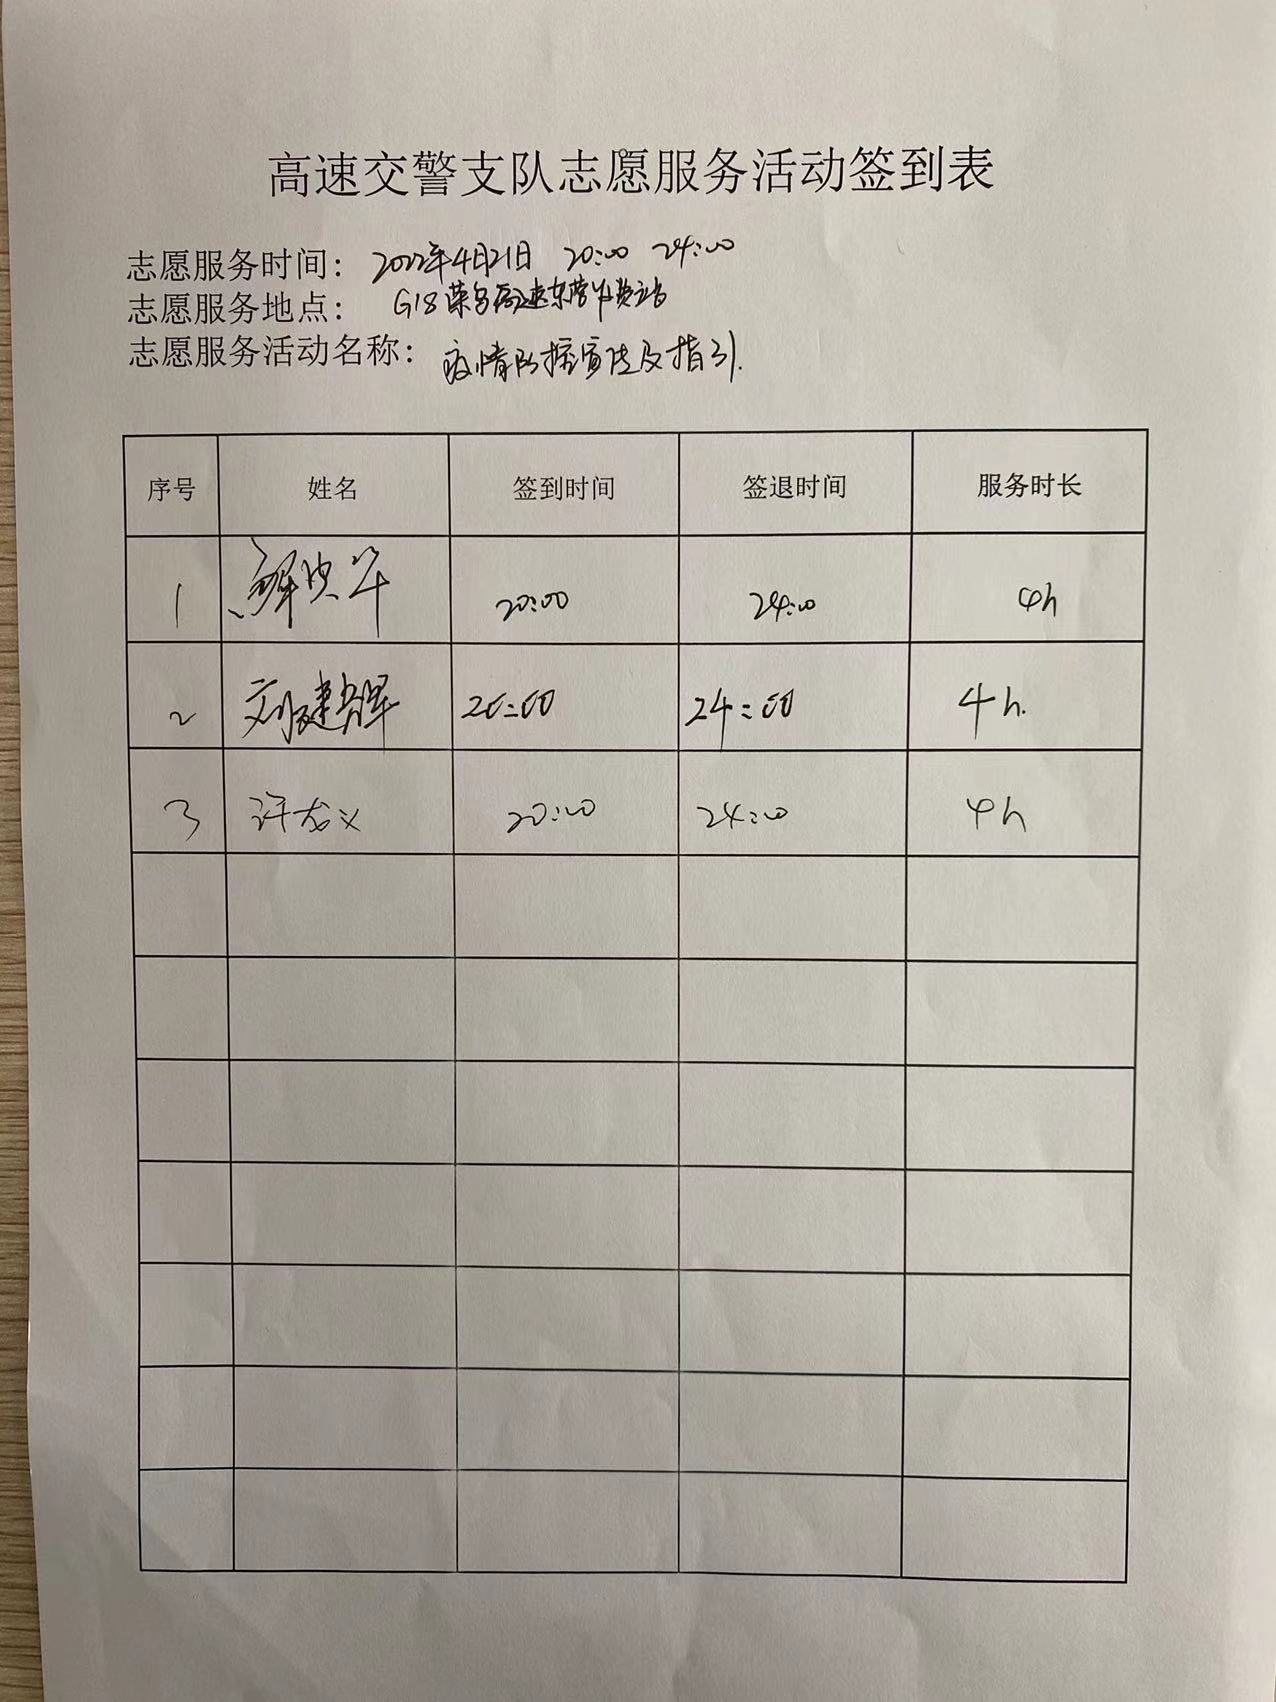 高速交警支队志愿服务活动签到表
志愿服务时间：2022年4月21日 20:00 24:00
志愿服务地点：G18荣乌高速东营收费站
志愿服务活动名称：疫情防控宣传及指引.
序号 姓名 签到时间 签退时间 服务时长
1 20:00 24:00 4h
2 刘建辉 20:00 24:00 4h.
3 许龙义 20:00 24:00 4h